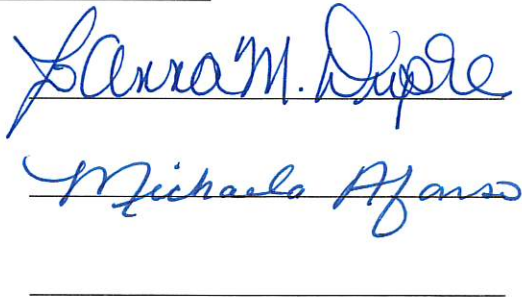 M. Dupre
Michaela Afonso